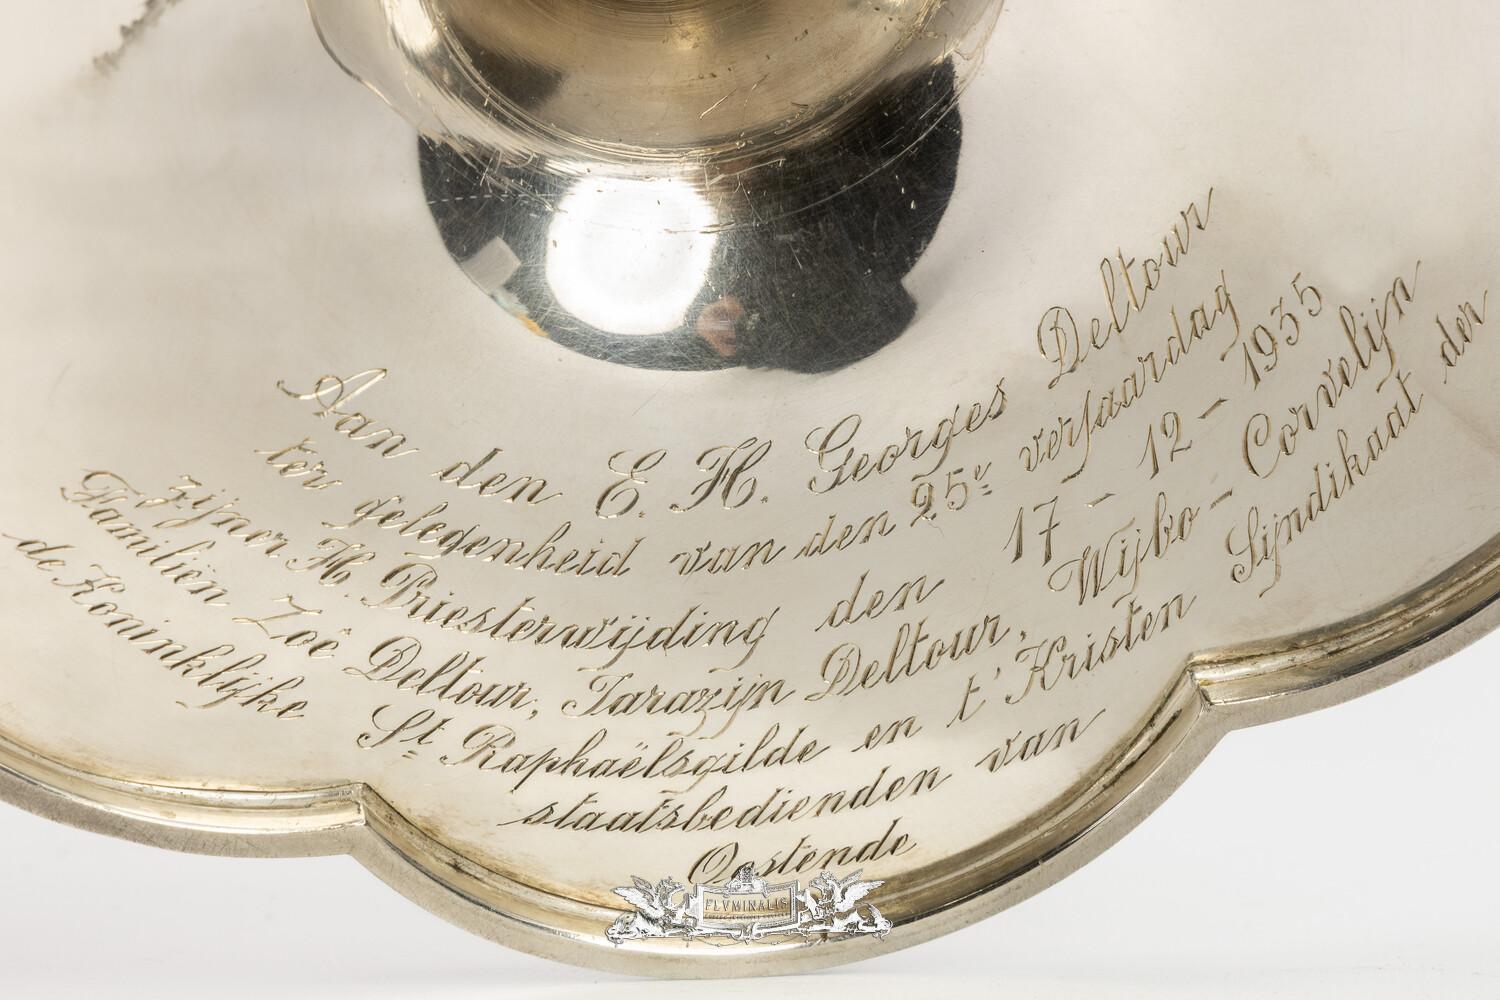 Aan den E. H. Georges Deltour
ter gelegenheid van den 25e verjaardag
zijner H. Priesterwijding den 17 - 12 - 1935
Familiën Zoë Deltour, Tarazijn Deltour, Wijbo - Corvelijn
de Koninklijke St Raphaëlsgilde en t' Kristen Sijndikaat der
staatsbedienden van
Oostende
FLVMINALIS